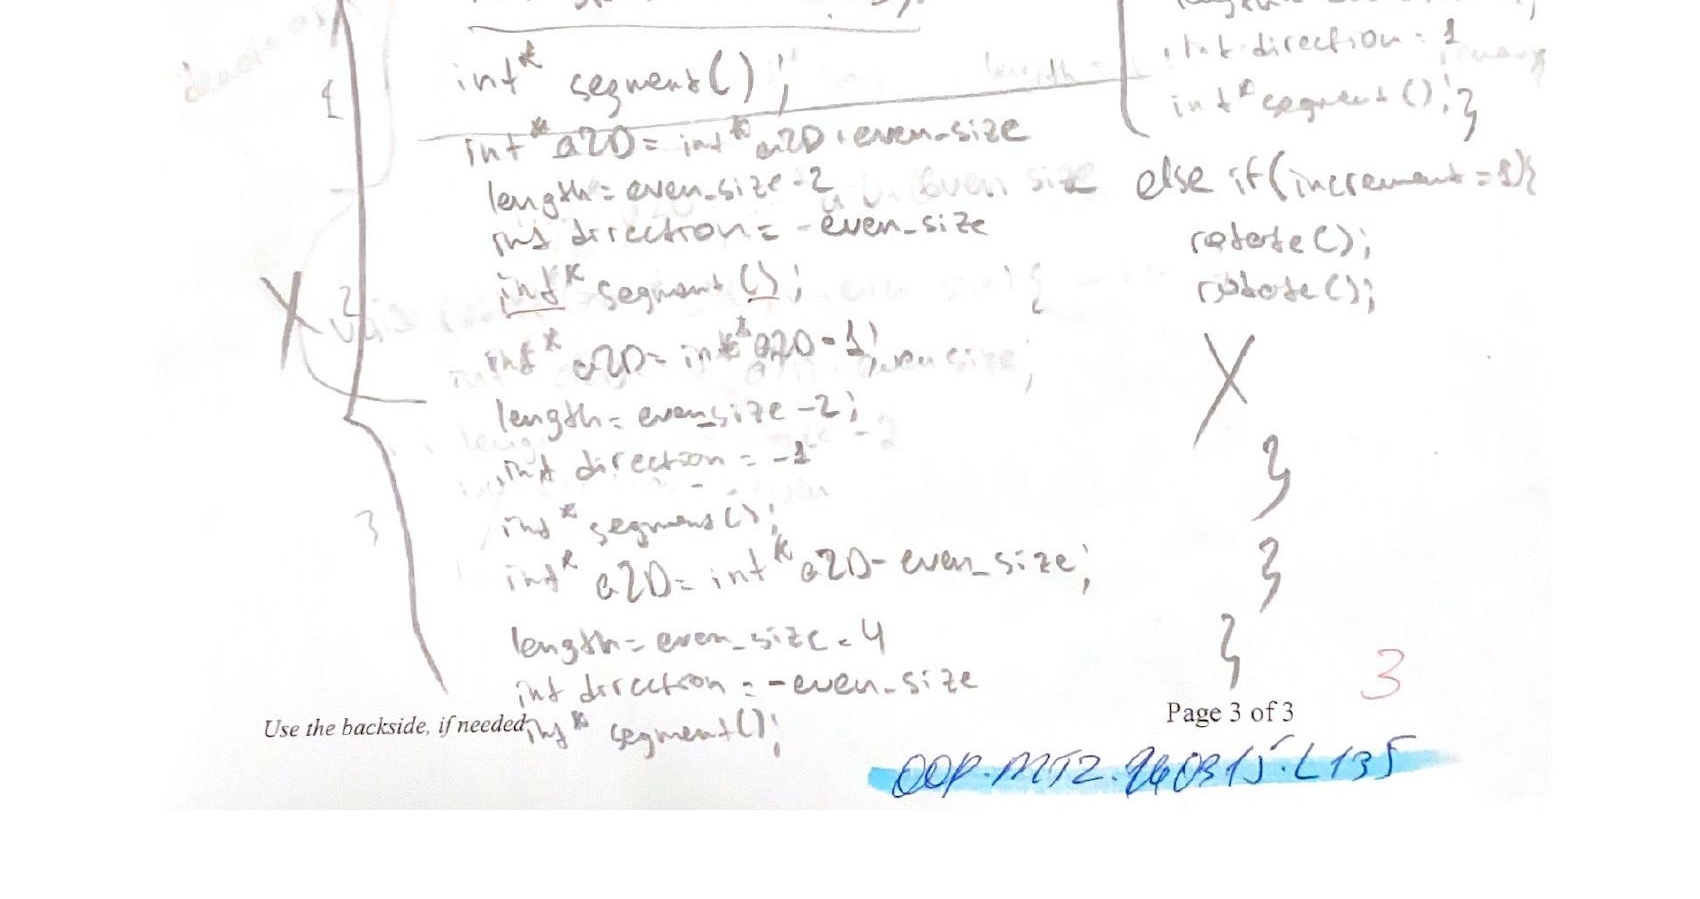 int* segment();
int* a2D = int* a2D + even_size
length = even_size - 2
int direction = -even_size
int* segment();
int* a2D = int* a2D - 1;
length = even_size - 2;
int direction = -1
int* segment();
int* a2D = int* a2D - even_size;
length = even_size - 4
int direction = -even_size
int* segment();
1
2
3
int direction = 1
int* segment(); }
else if (increment = 1) {
rotate();
rotate();
X
}
}
}
X
3
Use the backside, if needed
Page 3 of 3
OOP.MT2.240315.L135